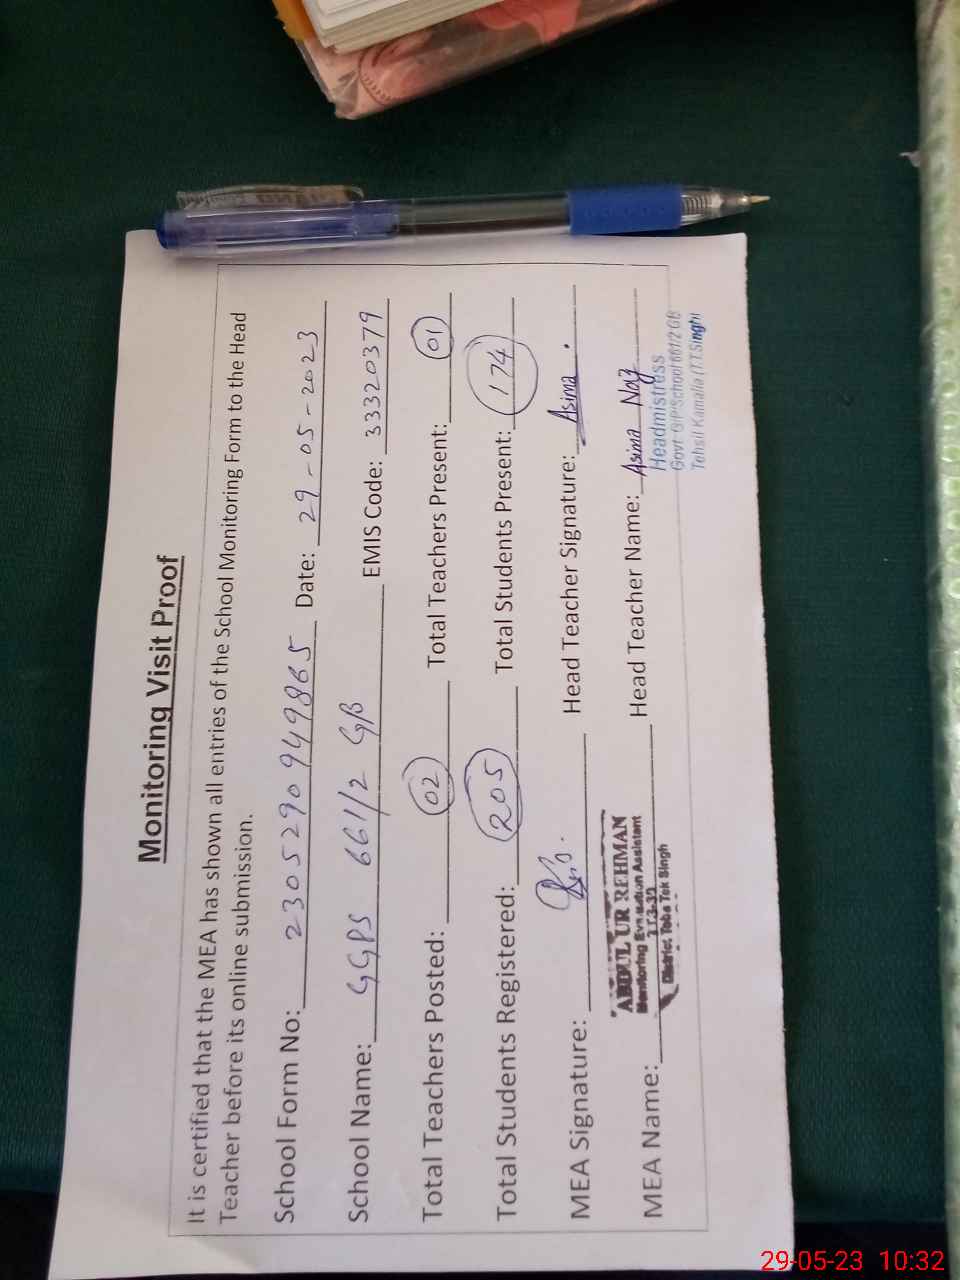 Monitoring Visit Proof
It is certified that the MEA has shown all entries of the School Monitoring Form to the Head
Teacher before its online submission.
School Form No: 23052909949865 Date: 29-05-2023
School Name: GGPS 661/2 GB EMIS Code: 33320379
Total Teachers Posted: 02 Total Teachers Present: 01
Total Students Registered: 205 Total Students Present: 174
MEA Signature: Head Teacher Signature: Asima.
MEA Name: Head Teacher Name: Asima Naz
ABDUL UR REHMAN
Monitoring Evaluation Assistant
District Toba Tek Singh
Headmistress
Govt: G/P/School 661/2 GB
Tehsil Kamalia (T.T.Singh)
29-05-23 10:32